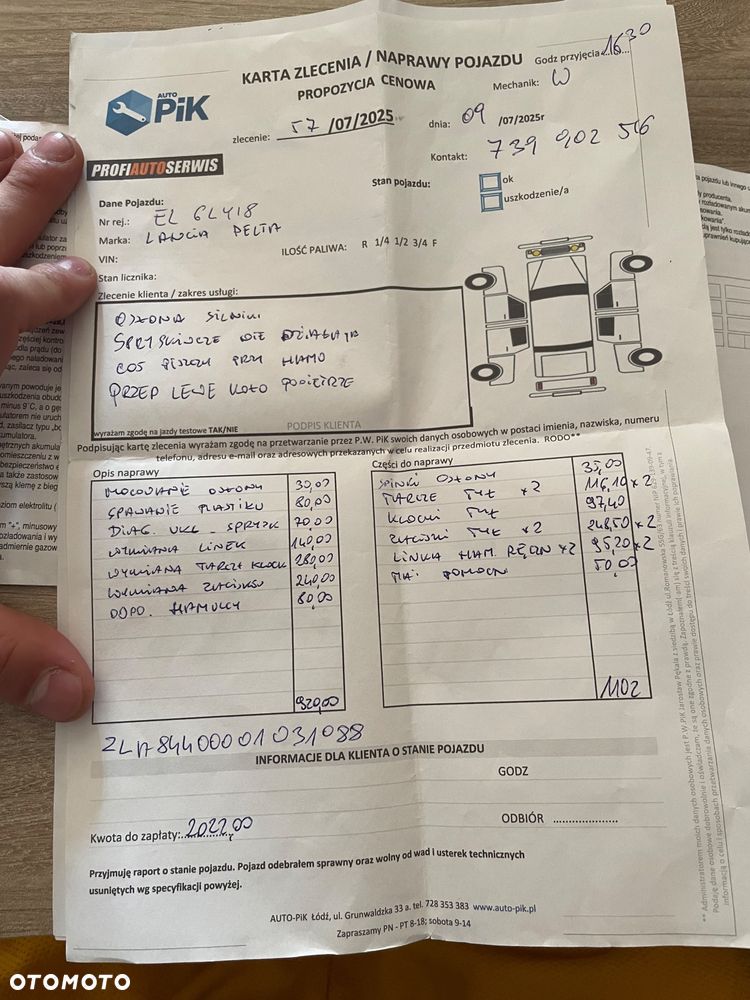 KARTA ZLECENIA / NAPRAWY POJAZDU
PROPOZYCJA CENOWA
Godz przyjęcia 16 30
Mechanik: W
AUTO PiK
PROFIAUTOSERWIS
zlecenie: 57 /07/2025
dnia: 09 /07/2025r
Kontakt: 739 902 556
Stan pojazdu:
ok
uszkodzenie/a
Dane Pojazdu:
Nr rej.: EL 6L418
Marka: LANCIA DELTA
VIN:
ILOŚĆ PALIWA: R 1/4 1/2 3/4 F
Stan licznika:
Zlecenie klienta / zakres usługi:
OSŁONA SILNIKA
SPRYSKIWACZE NIE DZIAŁAJĄ
COŚ PISZCZY PRZY HAMO
PRZED LEWE KOŁO
wyrażam zgodę na jazdy testowe TAK/NIE
PODPIS KLIENTA
Podpisując kartę zlecenia wyrażam zgodę na przetwarzanie przez P.W. PiK swoich danych osobowych w postaci imienia, nazwiska, numeru
telefonu, adresu e-mail oraz adresowych przekazanych w celu realizacji przedmiotu zlecenia. RODO**
Opis naprawy
MOCOWANIE OSŁONY 30,00
SPAWANIE PLASTIKU 80,00
DIAG. UKŁ SPRYSK 70,00
WYMIANA LINEK 140,00
WYMIANA TARCZ KLOCK 280,00
WYMIANA ZACISKU 240,00
ODPO. HAMULCY 80,00
920,00
Części do naprawy
SPINKI OSŁONY 35,00
TARCZE TYŁ x2 116,10 x2
KLOCKI TYŁ 97,40
ZACISKI TYŁ x2 248,50 x2
LINKA HAM. RĘCZN x2 95,20 x2
MAT. POMOCN 50,00
1102
ZLA84400001031088
INFORMACJE DLA KLIENTA O STANIE POJAZDU
GODZ
ODBIÓR ....................
Kwota do zapłaty: 2022,00
Przyjmuję raport o stanie pojazdu. Pojazd odebrałem sprawny oraz wolny od wad i usterek technicznych
usuniętych wg specyfikacji powyżej.
AUTO-PiK Łódź, ul. Grunwaldzka 33 a. tel. 728 353 383 www.auto-pik.pl
Zapraszamy PN - PT 8-18; sobota 9-14
OTOMOTO